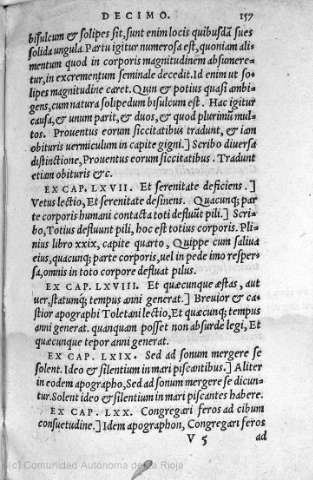 DECIMO. 157
bisulcum & solipes sit, sunt enim locis quibusdã sues
solida ungula. Partu igitur numerosa est, quoniam ali-
mentum quod in corporis magnitudinem absumere-
tur, in excrementum seminale decedit. Id enim ut so-
lipes magnitudine caret. Quin & potius quasi ambi-
gens, cum natura solipedum bisulcum est. Hac igitur
causa, & unum parit, & duos, & quod plurimũ mul-
tos. Prouentus eorum siccitatibus tradunt, & iam
obituris uermiculum in capite gigni.] Scribo diuersa
distinctione, Prouentus eorum siccitatibus. Tradunt
etiam obituris &c.
EX CAP. LXVII. Et serenitate deficiens.]
Vetus lectio, Et serenitate desinens. Quacunq; par
te corporis humani contacta toti defluũt pili.] Scri-
bo, Totius defluunt pili, hoc est totius corporis. Pli-
nius libro xxix, capite quarto, Quippe cum saliua
eius, quacunq; parte corporis, uel in pede imo resper-
sa, omnis in toto corpore defluat pilus.
EX CAP. LXVIII. Et quæcunque æstas, aut
uer, statumq; tempus anni generat.] Breuior & ca-
stior apographi Toletani lectio, Et quæcunq; tempus
anni generat. quanquam posset non absurde legi, Et
quæcunque tepor anni generat.
EX CAP. LXIX. Sed ad sonum mergere se
solent. Ideo & silentium in mari piscantibus.] Aliter
in eodem apographo, Sed ad sonum mergere se dicun-
tur. Solent ideo & silentium in mari piscantes habere.
EX CAP. LXX. Congregari feros ad cibum
consuetudine.] Idem apographon, Congregari feros
V 5 ad
(c) Comunidad Autónoma de La Rioja